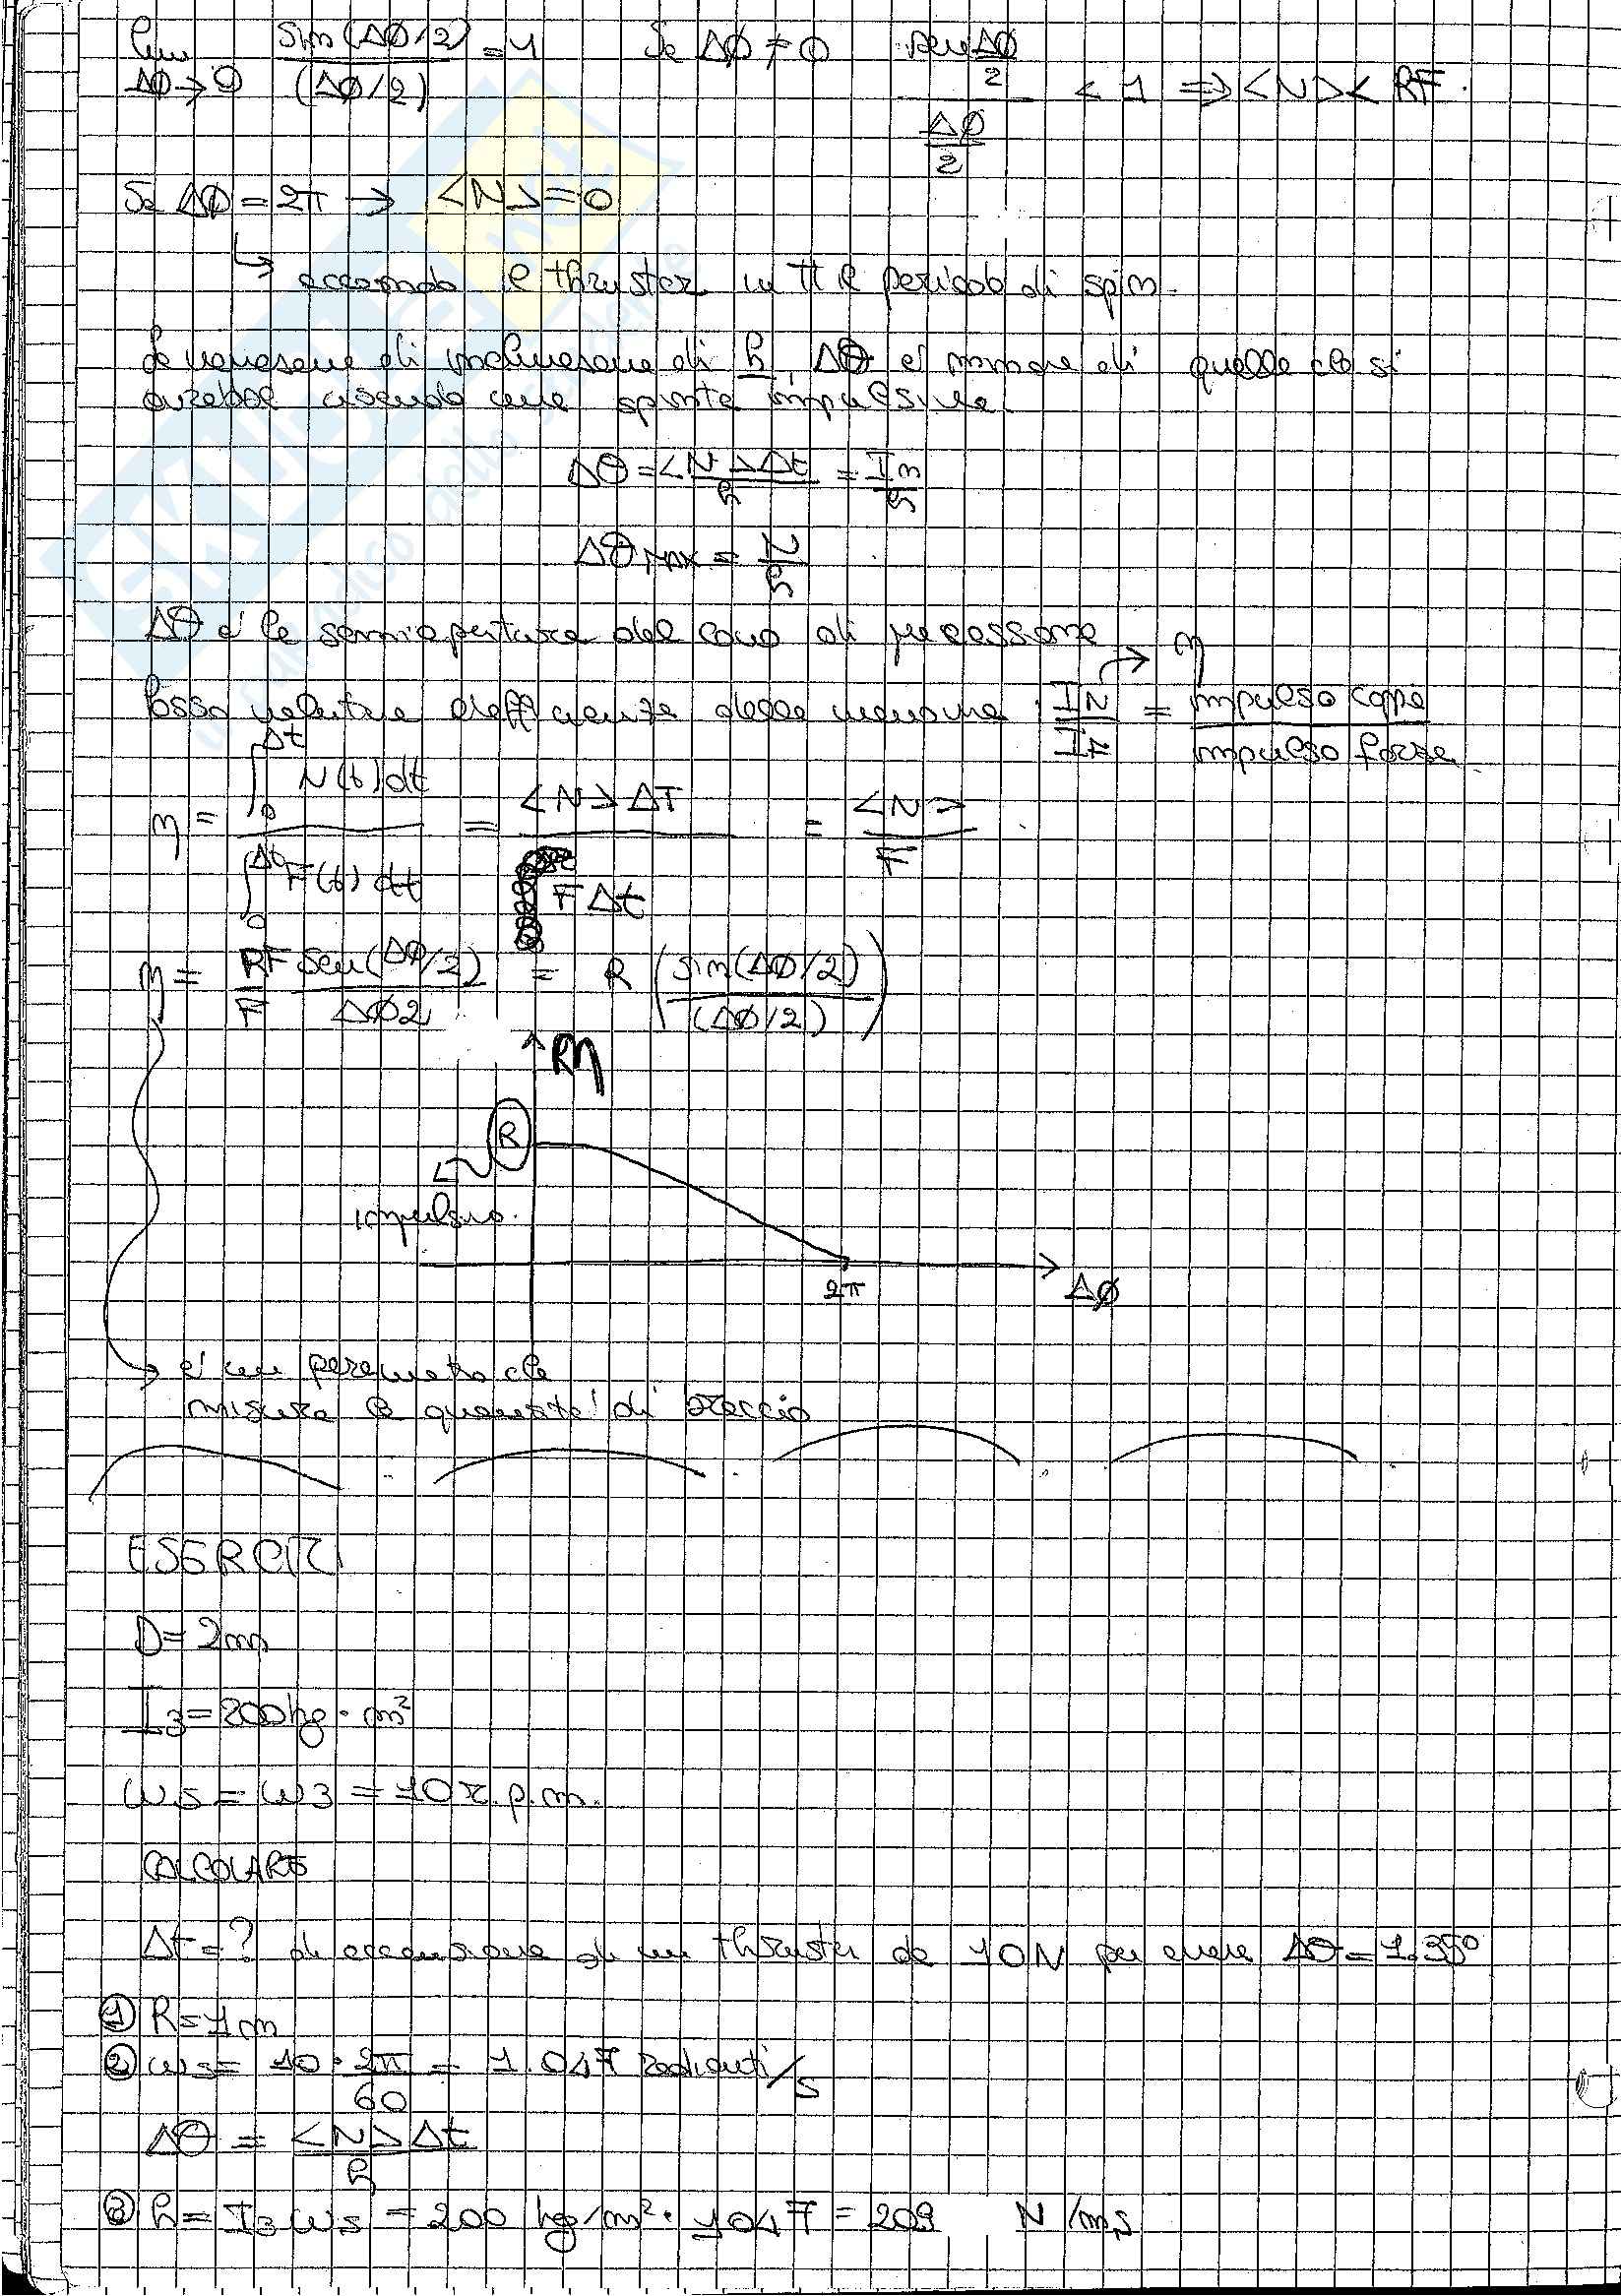 lim Δφ→0 sin(Δφ/2)/(Δφ/2) = 1 Se Δφ ≠ 0 sen Δφ/2 / Δφ/2 < 1 ⇒ <N> < RF.
Se Δφ = 2π → <N> = 0
↳ accendo il thruster in tt il periodo di spin.
La variazione di inclinazione di h, ΔΘ è minore di quella che si
avrebbe usando una spinta impulsiva.
ΔΘ = <N>Δt/h = In/h
ΔΘ MAX = N/h
ΔΘ è la semiapertura del cono di precessione
Posso valutare l'efficienza della manovra: IN/IF = impulso coppia/impulso forza → η
η = ∫₀^Δt N(t)dt / ∫₀^Δt F(t)dt = <N>ΔT / FΔt = <N>/F
η = RF/F sen(Δφ/2)/Δφ2 = R (sin(Δφ/2)/(Δφ/2))
Rη
R
impulsivo.
2π
Δφ
→ è un parametro che
misura la quantità di braccio
ESERCIZI
D = 2m
I3 = 200 kg · m²
ωs = ω3 = 10 r.p.m.
CALCOLARE
Δt = ? di accensione di un thruster da 10N per avere ΔΘ = 1.35°
① R = 1m
② ωs = 10 · 2π/60 = 1.047 radianti/s
ΔΘ = <N>Δt/h
③ h = I3 ωs = 200 kg/m² · 1047 = 209 N/ms